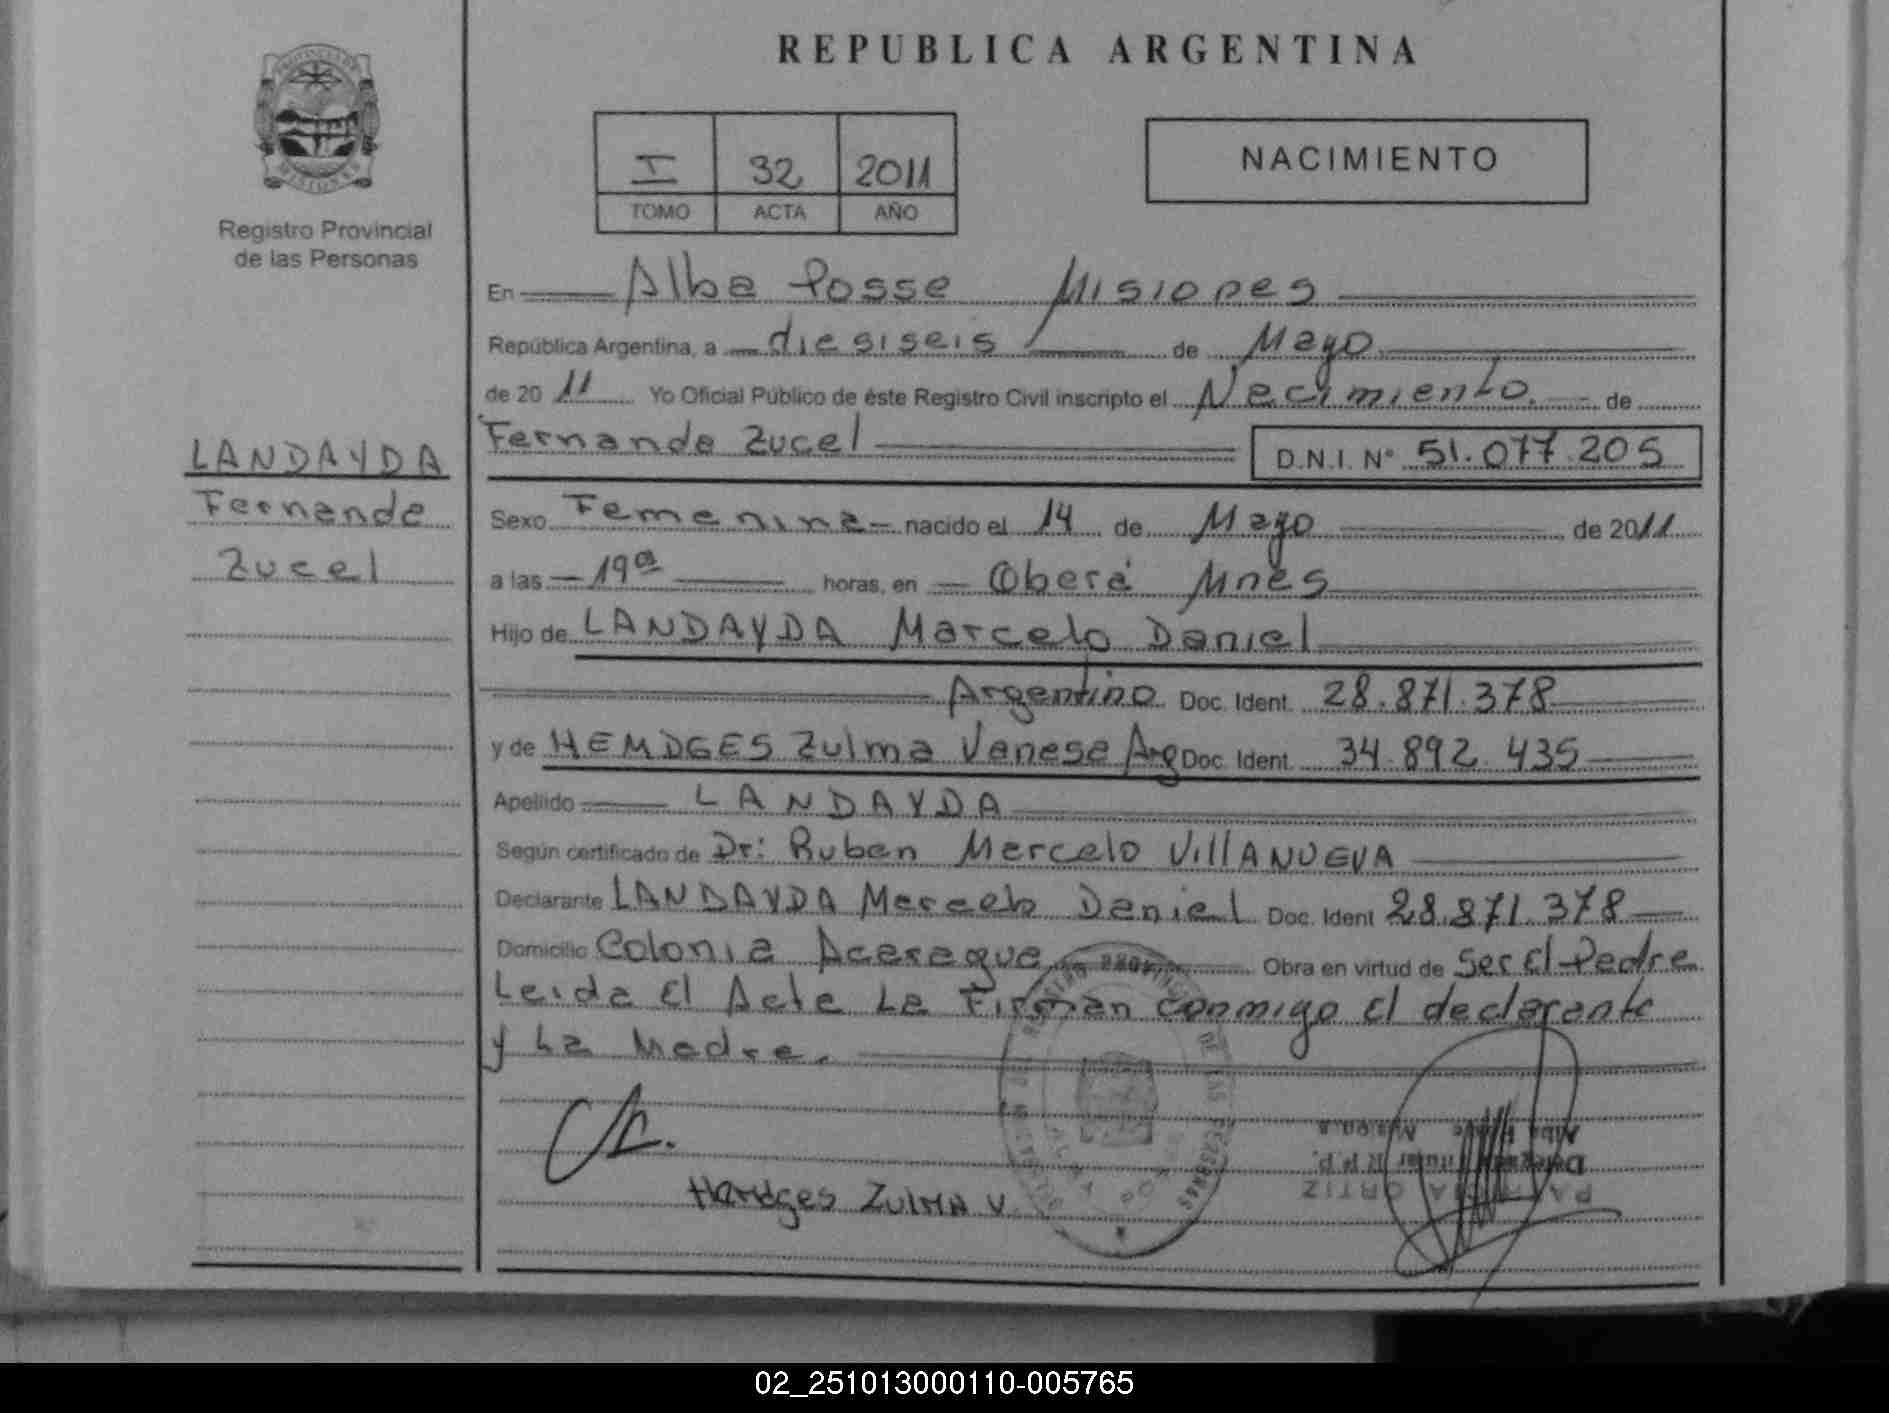 REPUBLICA ARGENTINA
PROVINCIA DE
MISIONES
Registro Provincial
de las Personas
I 32 2011
TOMO ACTA AÑO
NACIMIENTO
En Alba Posse Misiones
República Argentina, a diesiseis de Mayo
de 2011 Yo Oficial Público de éste Registro Civil inscripto el Nacimiento de
Fernanda Zucel D.N.I. N° 51.077.205
LANDAYDA
Fernanda
Zucel
Sexo Femenina nacido el 14 de Mayo de 2011
a las 19ª horas, en Oberá Mnes
Hijo de LANDAYDA Marcelo Daniel
Argentino Doc. Ident. 28.871.378
y de HEMDGES Zulma Vanesa Arg Doc. Ident. 34.892.435
Apellido LANDAYDA
Según certificado de Dr: Ruben Marcelo VillANUEVA
Declarante LANDAYDA Marcelo Daniel Doc. Ident 28.871.378
Domicilio Colonia Acaragua Obra en virtud de Ser El Padre
Leida El Acta La Firman conmigo El declarante
y La Madre.
ZULMA V.
ORTIZ
Titular R.P.P.
02_251013000110-005765